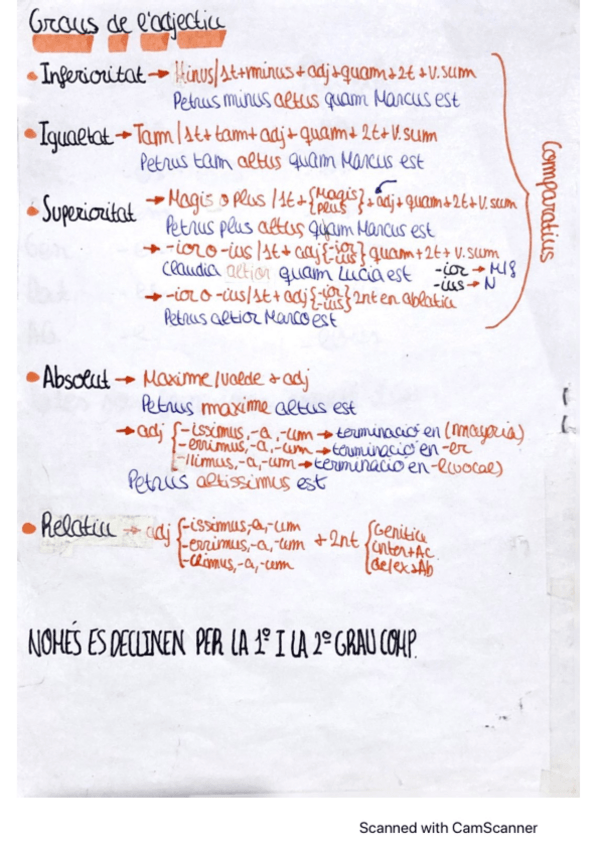 Graus de l'adjectiu
• Inferioritat → Minus/1t+minus+adj+quam+2t+V.sum
Petrus minus altus quam Marcus est
• Igualtat → Tam/1t+tam+adj+quam+2t+V.sum
Petrus tam altus quam Marcus est
• Superioritat → Magis o Plus/1t+{Magis Plus}+adj+quam+2t+V.sum
Petrus plus altus quam Marcus est
→ -ior o -ius/1t+adj{-ior -ius}quam+2t+v.sum
Claudia altior quam Lucia est -ior → M/f
-ius → N
→ -ior o -ius/1t+adj{-ior -ius}2nt en ablatiu
Petrus altior Marco est
Comparatius
• Absolut → Maxime/valde + adj
Petrus maxime altus est
→ adj {-issimus,-a,-um → terminació en (mayoria)
-errimus,-a,-um → terminació en -er
-llimus,-a,-um → terminació en -l(vocal)
Petrus altissimus est
• Relatiu → adj {-issimus,-a,-um
-errimus,-a,-um + 2nt {Genitiu
inter+Ac.
-limus,-a,-um de/ex+Ab
NOMÉS ES DECLINEN PER LA 1º I LA 2º GRAU COMP.
Scanned with CamScanner